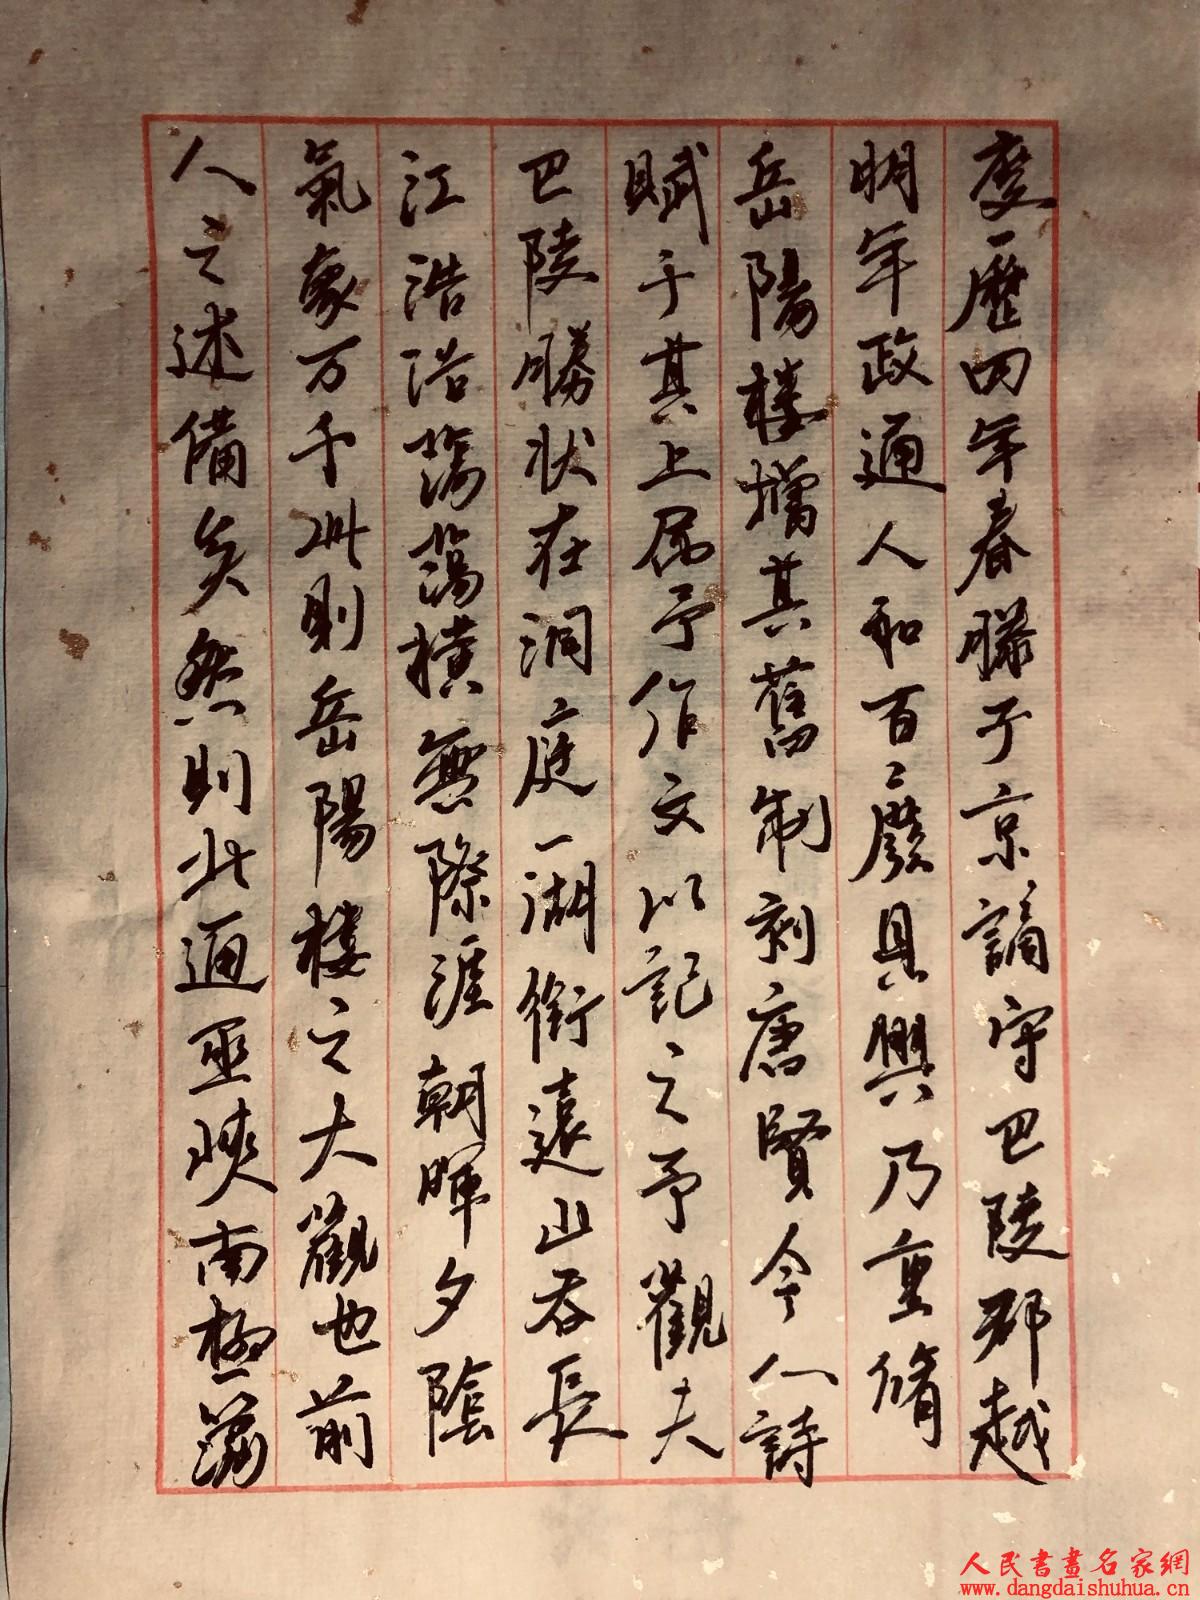 慶歷四年春滕子京謫守巴陵郡越
明年政通人和百廢具興乃重脩
岳陽樓增其舊制刻唐賢今人詩
賦于其上屬予作文以記之予觀夫
巴陵勝狀在洞庭一湖銜遠山吞長
江浩浩蕩蕩橫無際涯朝暉夕陰
氣象万千此則岳陽樓之大觀也前
人之述備矣然則北通巫峽南極瀟
人民書畫名家網
www.dangdaishuhua.com